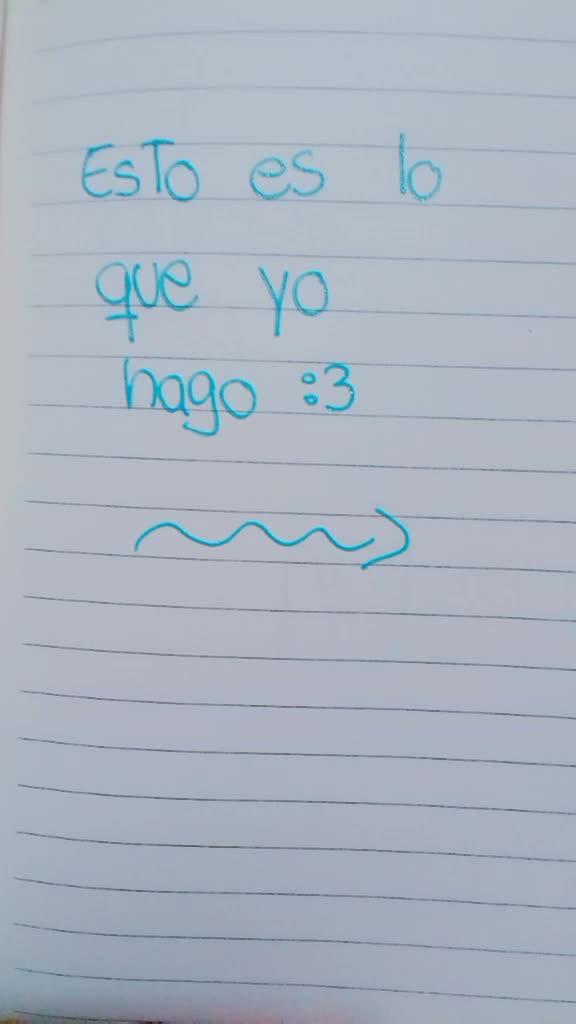 EsTo es lo
que yo
hago :3